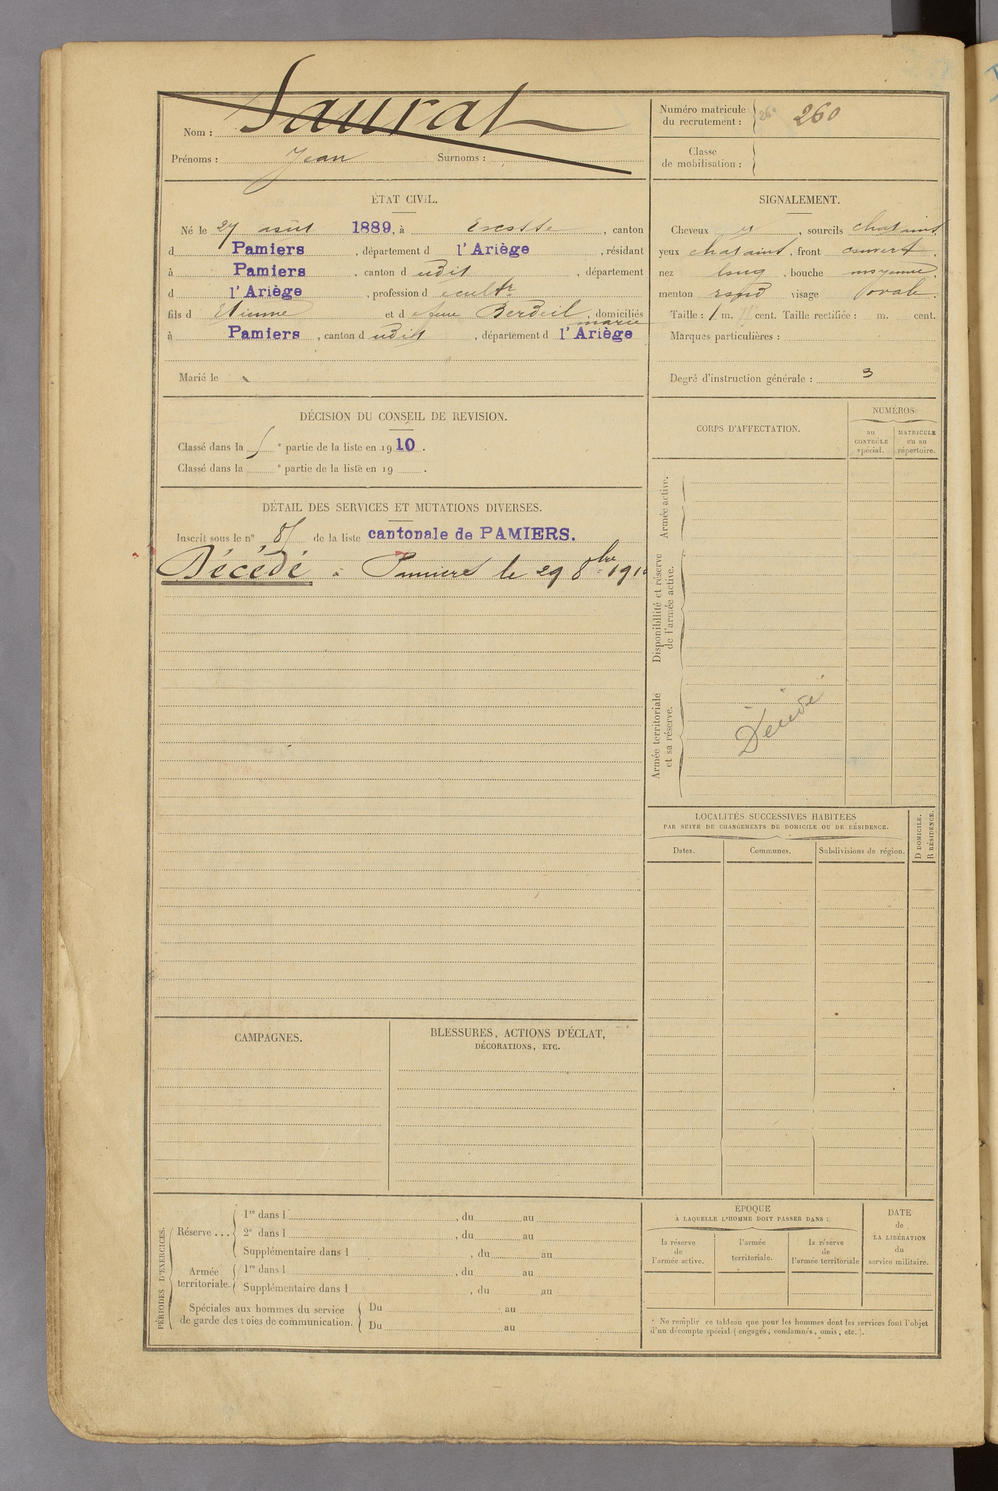 Nom : Saurat
Prénoms : Jean Surnoms :
Numéro matricule
du recrutement : 260
Classe
de mobilisation :
ÉTAT CIVIL.
Né le 27 août 1889, à , canton
d Pamiers , département d l'Ariège , résidant
à Pamiers , canton d udit , département
d l'Ariège , profession d cultr
fils d Etienne et d e feue Berdeil marie , domiciliés
à Pamiers , canton d udit , département d l'Ariège
Marié le
SIGNALEMENT.
Cheveux et , sourcils chatains
yeux chatains , front couvert .
nez long , bouche moyenne .
menton rond visage ovale .
Taille : 1 m. cent. Taille rectifiée : m. cent.
Marques particulières :
Degré d'instruction générale : 3
DÉCISION DU CONSEIL DE REVISION.
Classé dans la * partie de la liste en 1910 .
Classé dans la * partie de la liste en 19 .
DÉTAIL DES SERVICES ET MUTATIONS DIVERSES.
Inscrit sous le n° 81 de la liste cantonale de PAMIERS.
Décédé à Pamiers le 29 8bre 1910
CORPS D'AFFECTATION.
NUMÉROS
au
CONTRÔLE
spécial.
MATRICULE
ou au
répertoire.
Armée active.
Disponibilité et réserve
de l'armée active.
Armée territoriale
et sa réserve.
Décédé
LOCALITÉS SUCCESSIVES HABITÉES
PAR SUITE DE CHANGEMENTS DE DOMICILE OU DE RÉSIDENCE.
D DOMICILE.
R RÉSIDENCE.
Dates. Communes. Subdivisions de région.
CAMPAGNES.
BLESSURES, ACTIONS D'ÉCLAT,
DÉCORATIONS, ETC.
PÉRIODES D'EXERCICES.
Réserve ...
1re dans l , du au
2e dans l , du au
Supplémentaire dans l , du au
Armée
territoriale.
1re dans l , du au
Supplémentaire dans l , du au
Spéciales aux hommes du service
de garde des voies de communication.
Du au
Du au
EPOQUE
À LAQUELLE L'HOMME DOIT PASSER DANS :
la réserve
de
l'armée active.
l'armée
territoriale.
la réserve
de
l'armée territoriale
DATE
de
LA LIBÉRATION
du
service militaire.
* Ne remplir ce tableau que pour les hommes dont les services font l'objet
d'un décompte spécial (engagés, condamnés, omis, etc.).